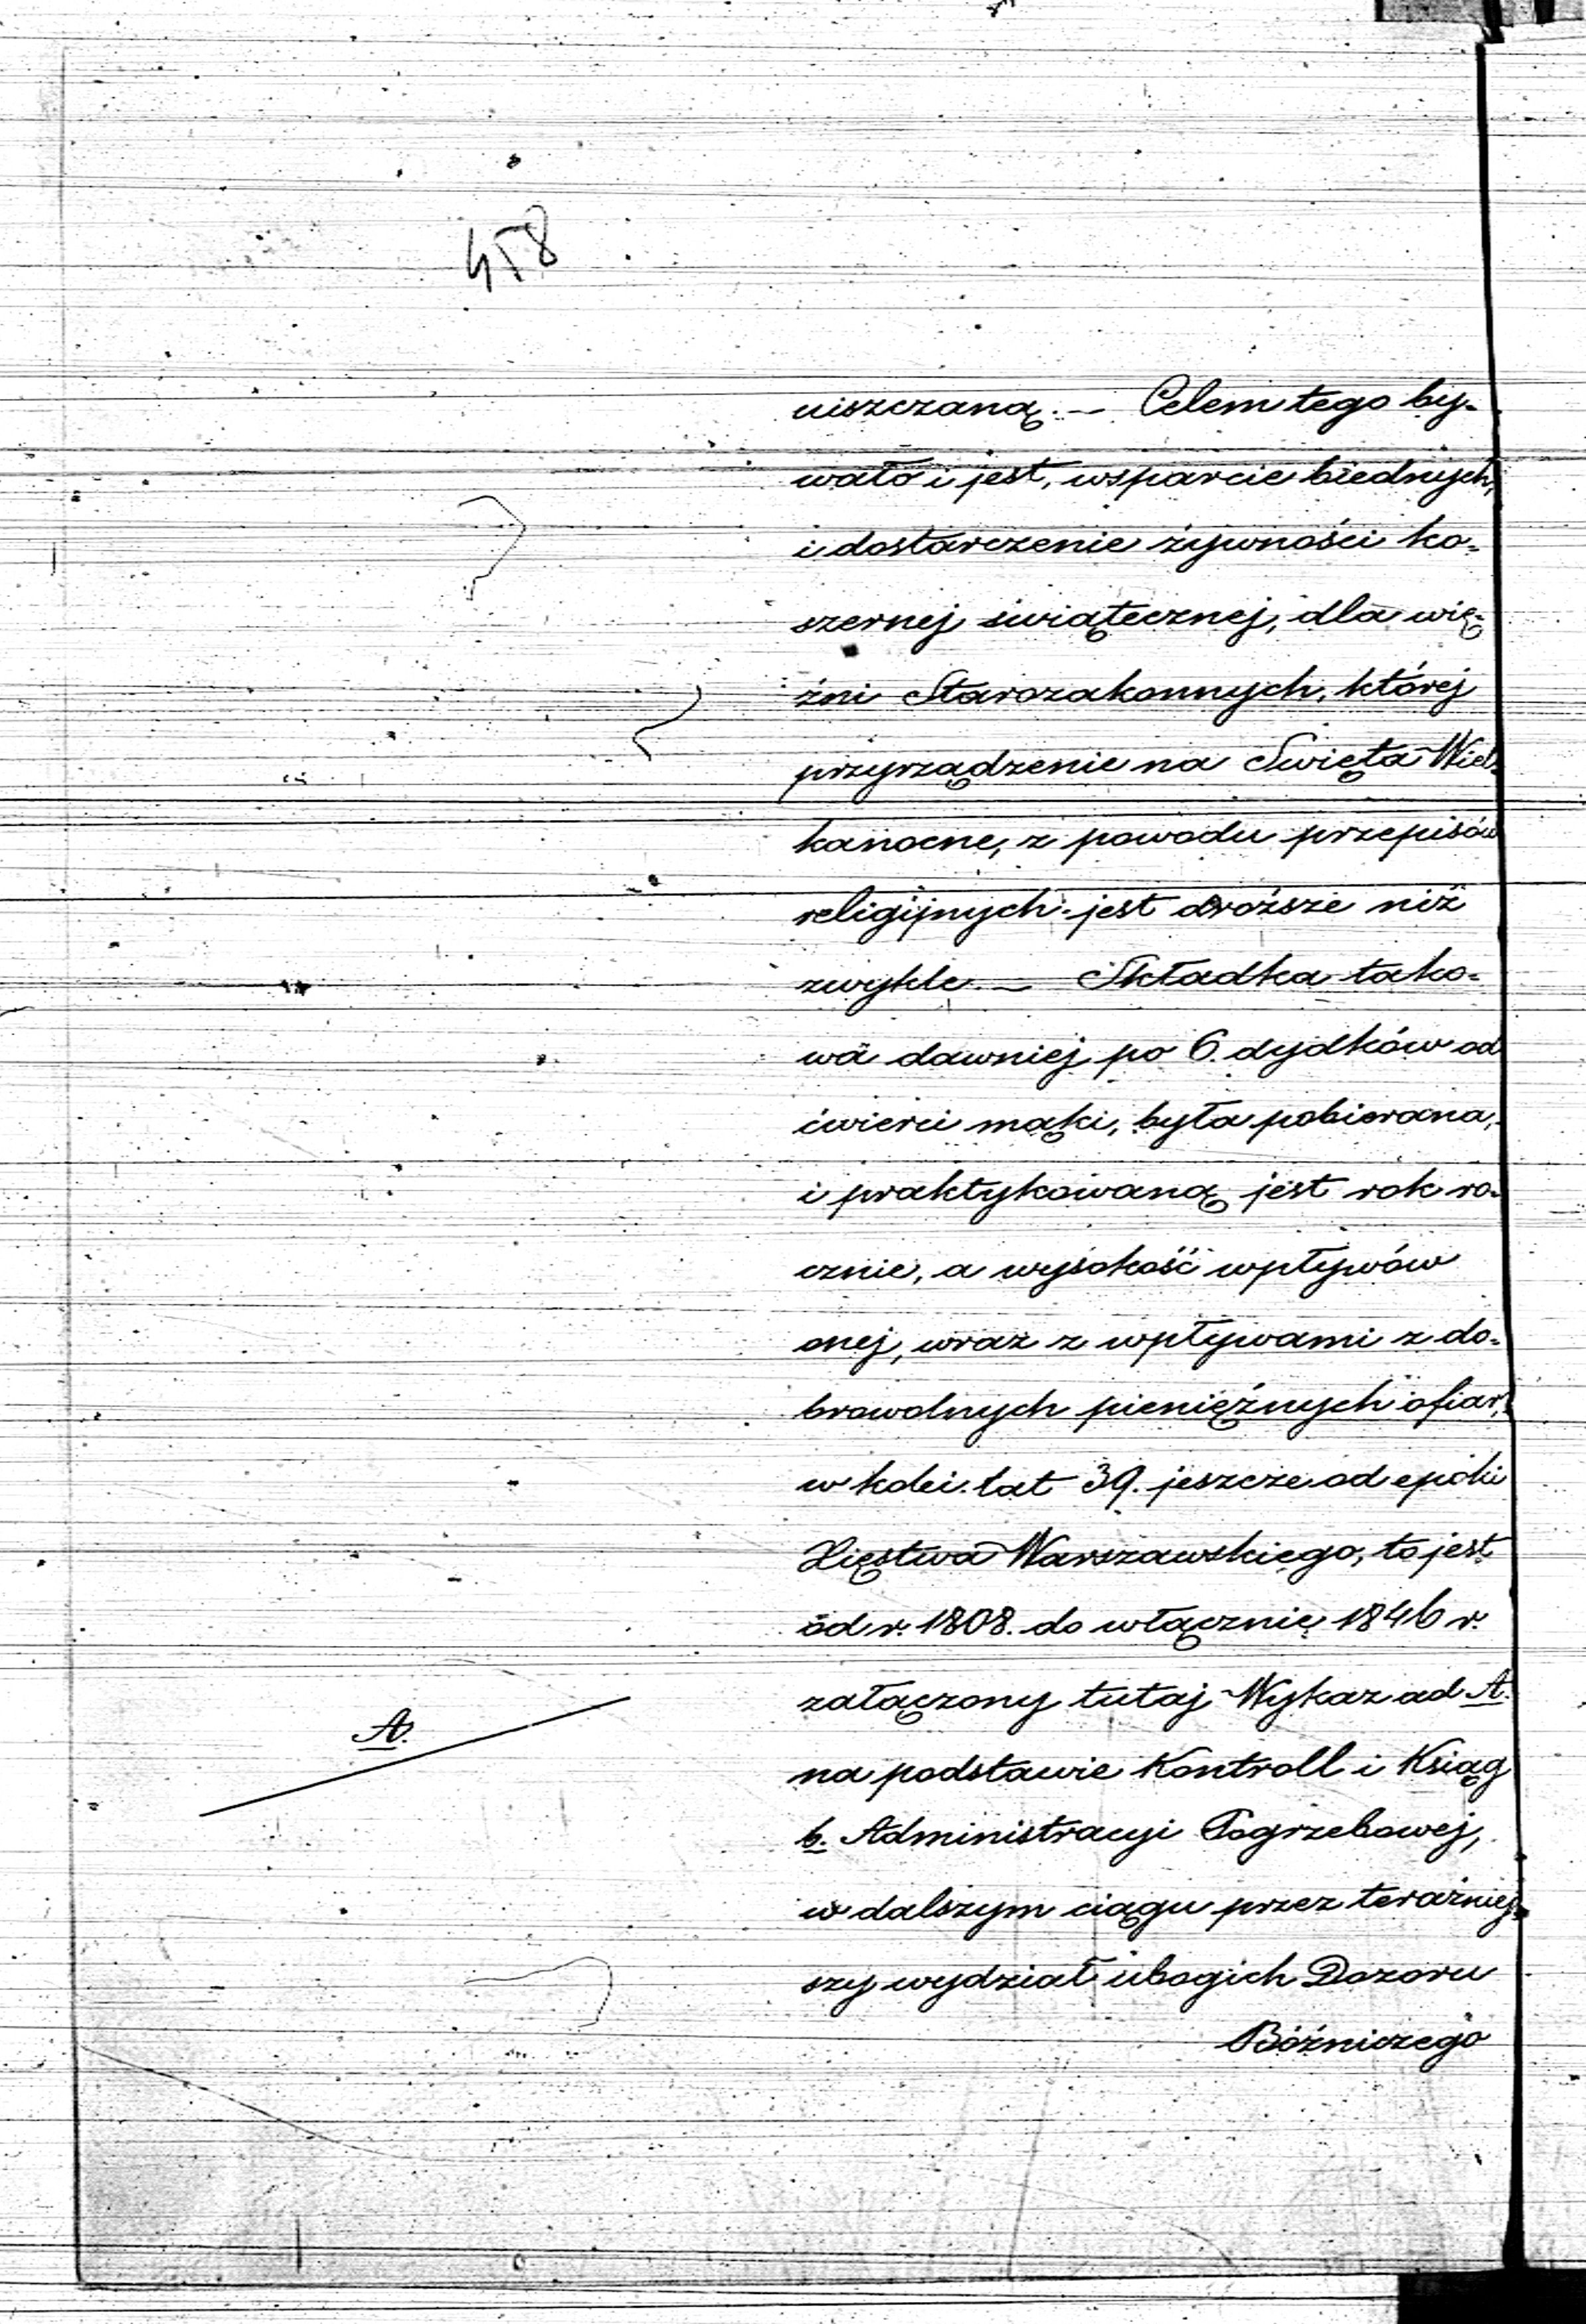 458
uiszczaną. — Celem tego by-
wało i jest, wsparcie biednych,
i dostarczenie żywności ko-
szernej świątecznej, dla wię-
źni Starozakonnych, której
przyrządzenie na Święta Wiel-
kanocne, z powodu przepisów
religijnych jest droższe niż
zwykle. — Składka tako-
wa dawniej po 6. dydków od
ćwierci mąki, była pobierana,
i praktykowaną jest rok ro-
cznie, a wysokość wpływów
onej, wraz z wpływami z do-
browolnych pieniężnych ofiar,
w kolei lat 39. jeszcze od epoki
Xięstwa Warszawskiego, to jest
od r. 1808. do włącznie 1846 r.
załączony tutaj Wykaz ad A.
A.
na podstawie Kontroll i Ksiąg
b. Administracyi Pogrzebowej,
w dalszym ciągu przez teraźniej-
szy wydział ubogich Dozoru
Bóżniczego